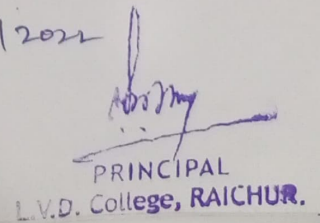 /2022
PRINCIPAL
L.V.D. College, RAICHUR.